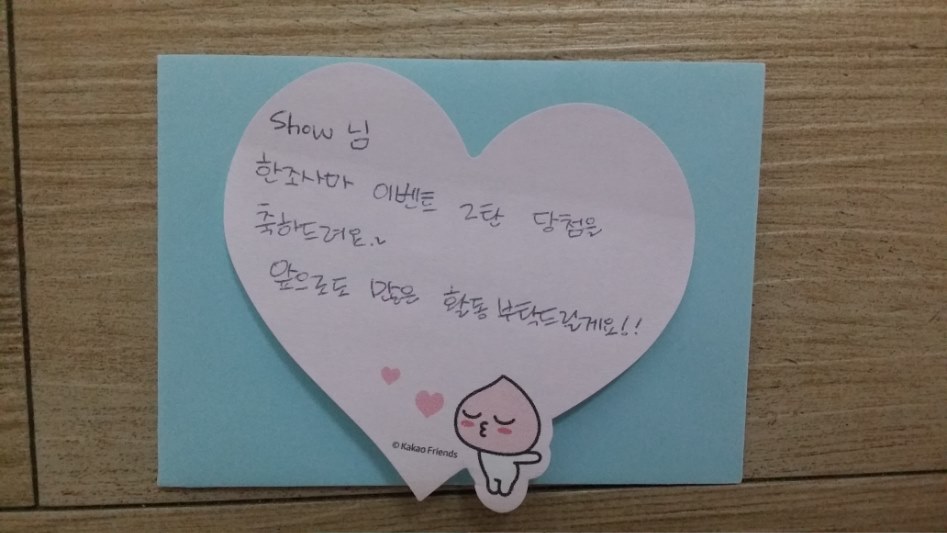 Show 님
한조사마 이벤트 2탄 당첨을
축하드려요~
앞으로도 많은 활동 부탁드릴게요!!
© Kakao Friends